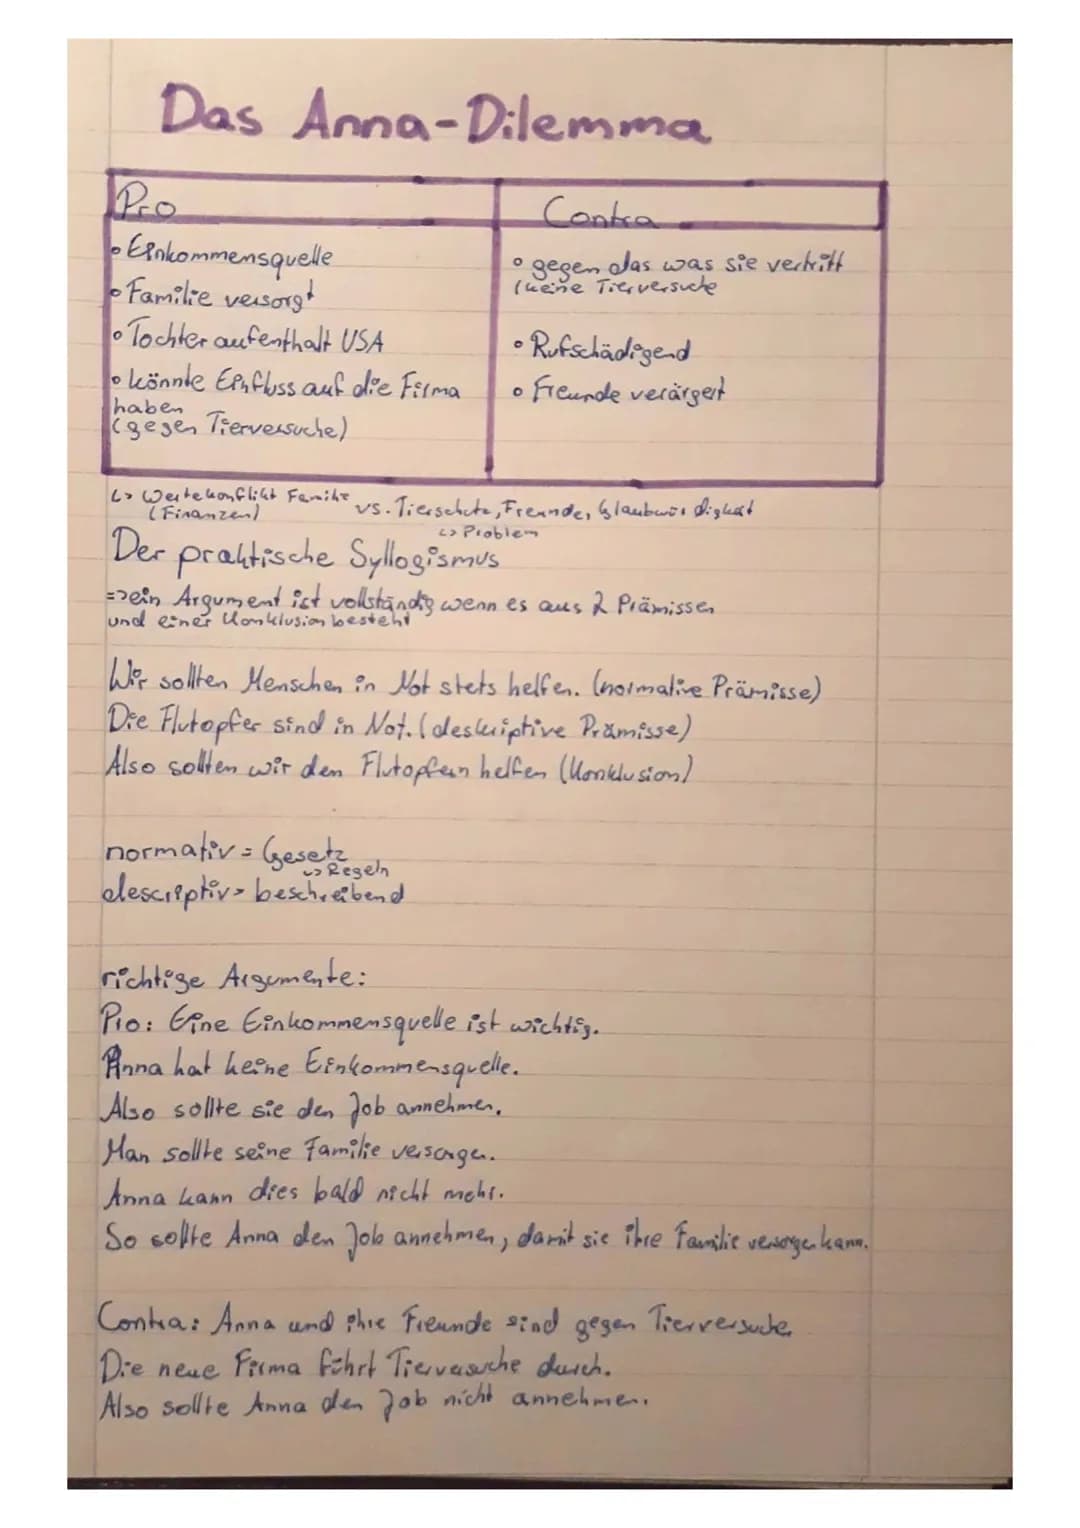 Das Anna-Dilemma
Pro
• Einkommensquelle
• Familie versorgt
• Tochter aufenthalt USA
• könnte Einfluss auf die Firma
haben
(gegen Tierversuche)
Contra
• gegen das was sie vertritt
(keine Tierversuche
• Rufschädigend
• Freunde verärgert
↳ Wertekonflikt Familie vs. Tierschutz, Freunde, Glaubwürdigkeit
(Finanzen)
↳ Problem
Der praktische Syllogismus
=> ein Argument ist vollständig wenn es aus 2 Prämissen
und einer Konklusion besteht
Wir sollten Menschen in Not stets helfen. (normative Prämisse)
Die Flutopfer sind in Not. (deskriptive Prämisse)
Also sollten wir den Flutopfern helfen (Konklusion)
normativ = Gesetz
↳ Regeln
descriptiv = beschreibend
richtige Argumente:
Pro: Eine Einkommensquelle ist wichtig.
Anna hat keine Einkommensquelle.
Also sollte sie den Job annehmen.
Man sollte seine Familie versorgen.
Anna kann dies bald nicht mehr.
So sollte Anna den Job annehmen, damit sie ihre Familie versorgen kann.
Contra: Anna und ihre Freunde sind gegen Tierversuche
Die neue Firma führt Tierversuche durch.
Also sollte Anna den Job nicht annehmen.